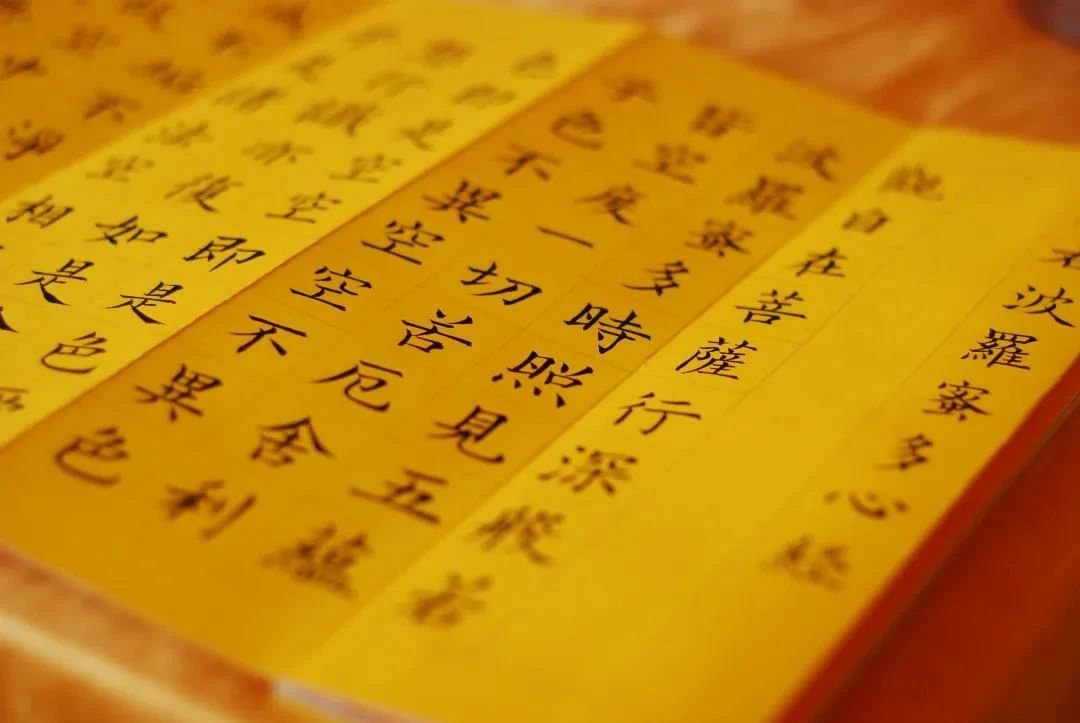 若波羅蜜多心經
觀自在菩薩行深般若
波羅蜜多時照見五蘊
皆空度一切苦厄舍利
子色不異空空不異色
色即是空空即是色
想行識亦復如是
子是諸法空相
不垢不淨